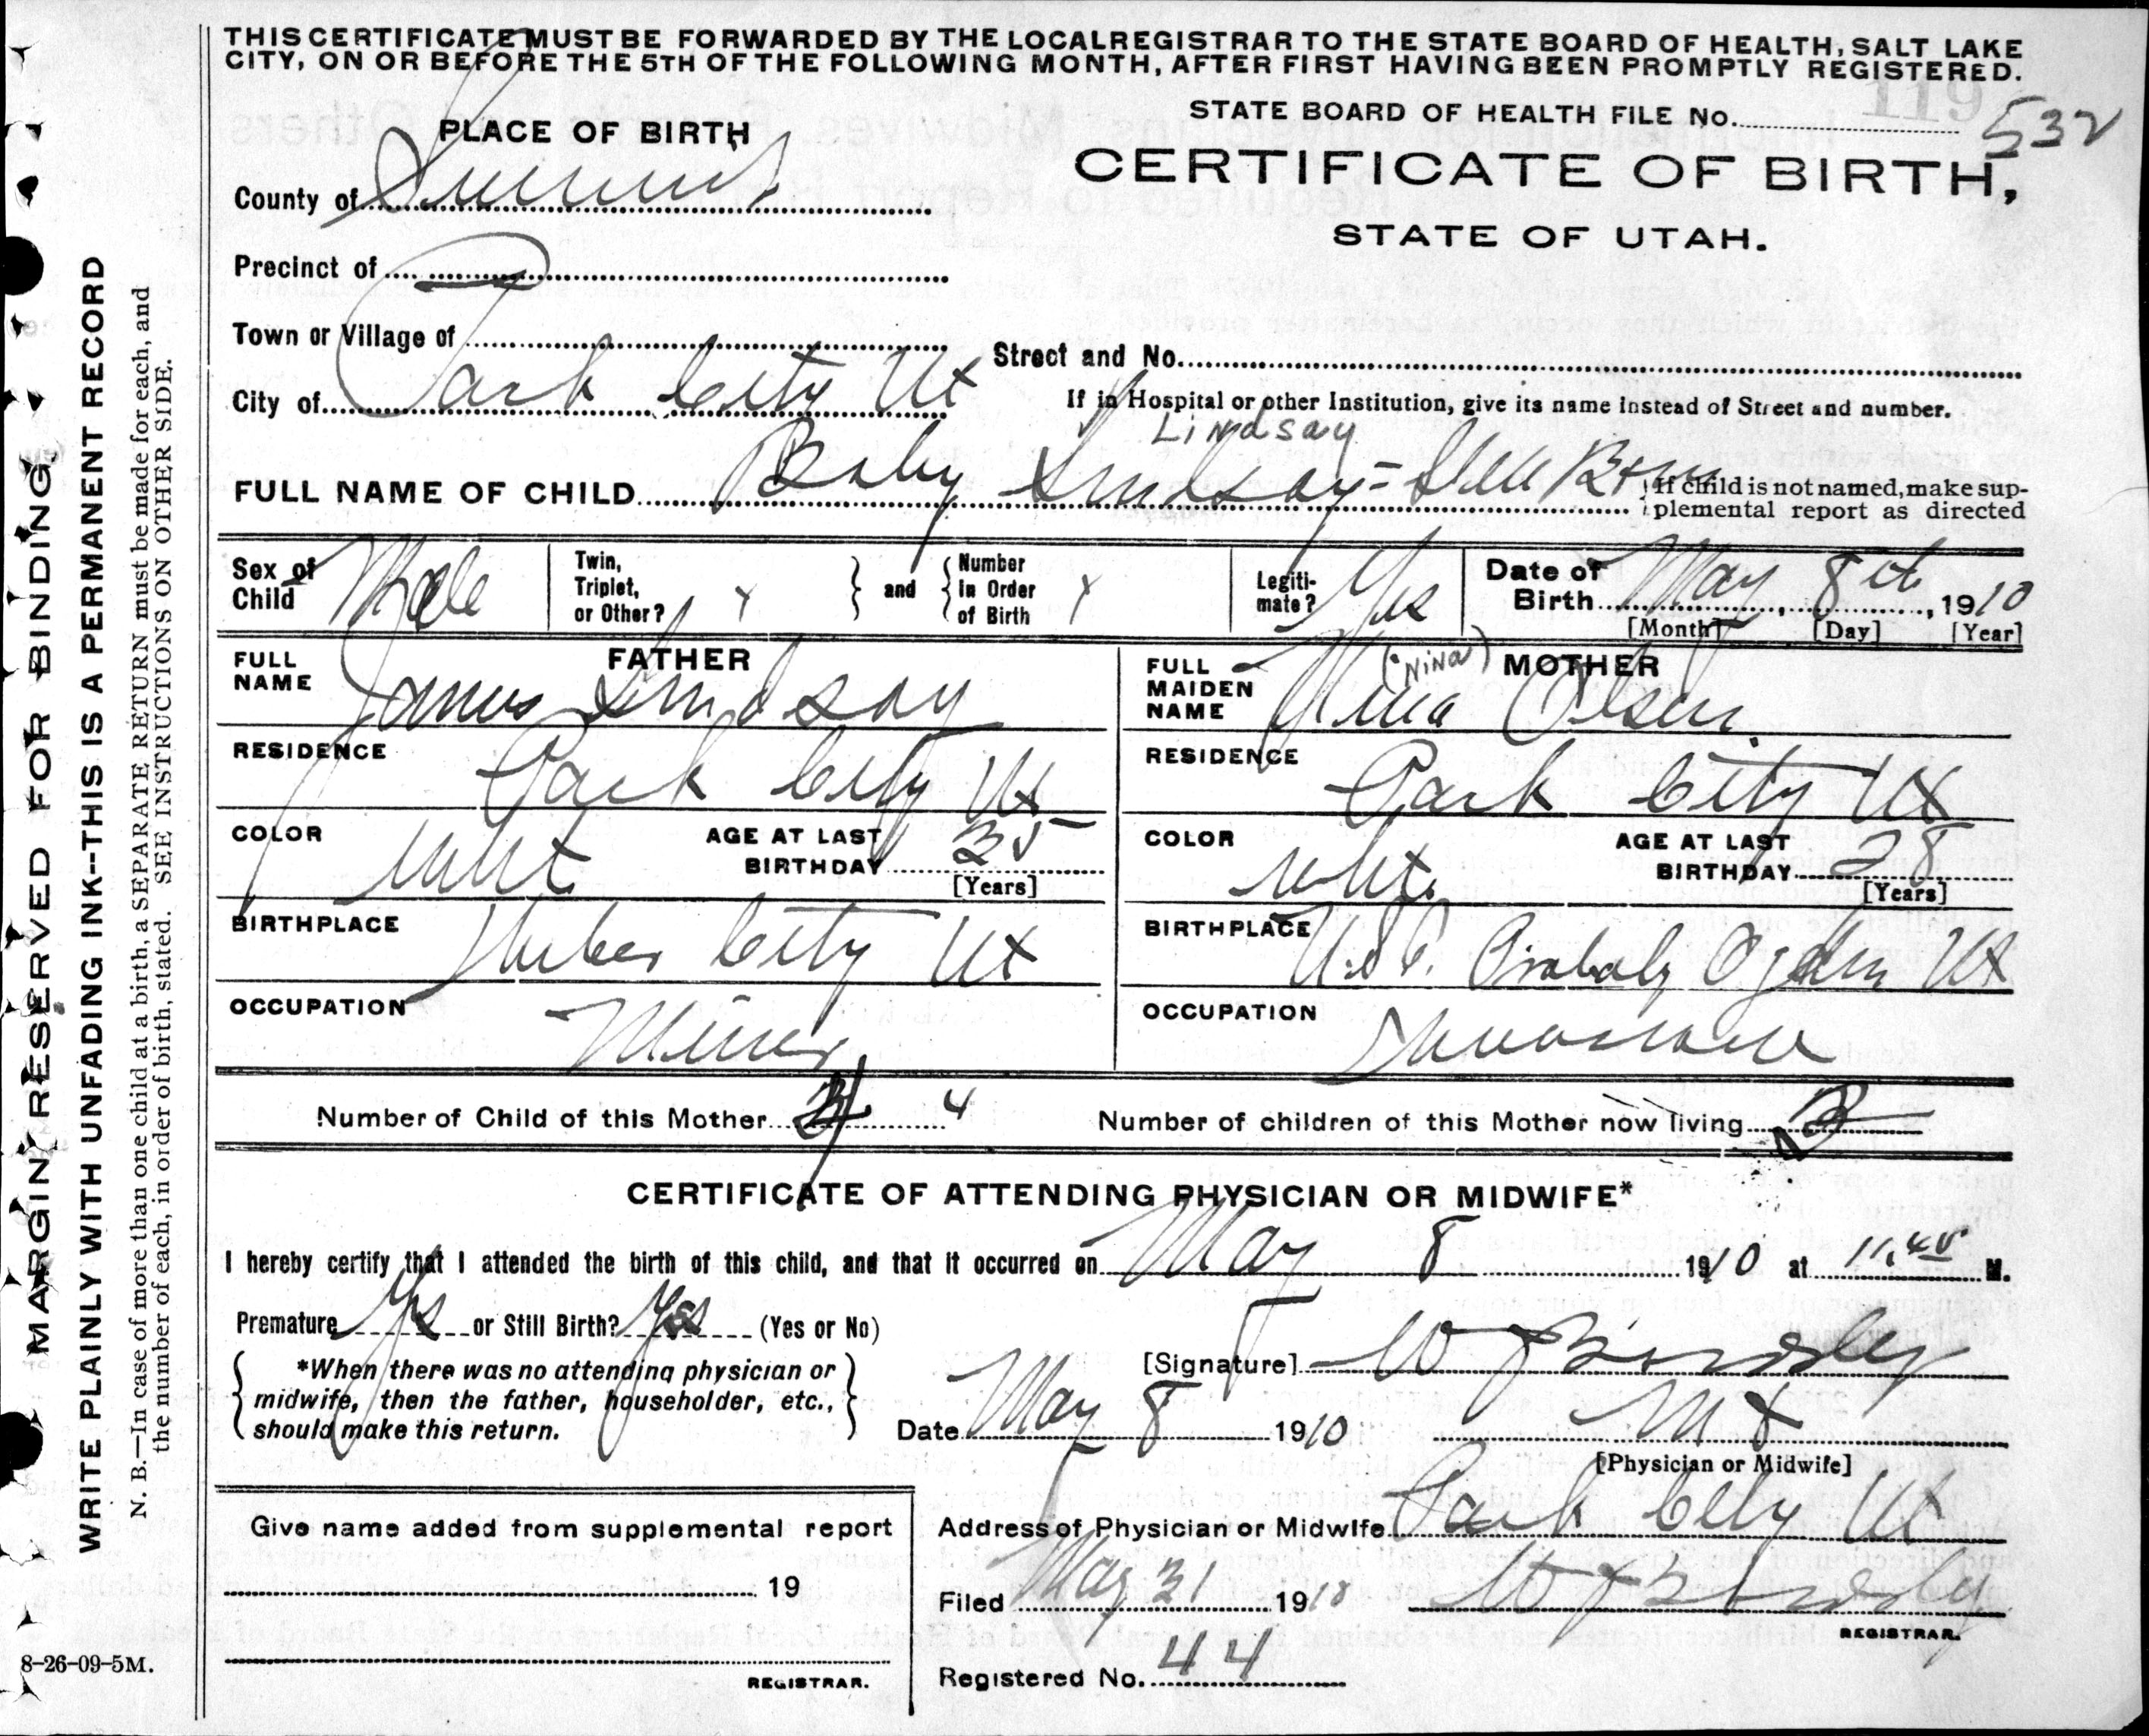 THIS CERTIFICATE MUST BE FORWARDED BY THE LOCAL REGISTRAR TO THE STATE BOARD OF HEALTH, SALT LAKE
CITY, ON OR BEFORE THE 5TH OF THE FOLLOWING MONTH, AFTER FIRST HAVING BEEN PROMPTLY REGISTERED.
119
STATE BOARD OF HEALTH FILE No. 532
PLACE OF BIRTH
CERTIFICATE OF BIRTH,
STATE OF UTAH.
County of Summit
Precinct of
Town or Village of
Street and No.
City of Park City Ut
If in Hospital or other Institution, give its name instead of Street and number.
Lindsay
FULL NAME OF CHILD Baby Lindsay = Still Born
If child is not named, make sup-
plemental report as directed
Sex of Child Male
Twin, Triplet, or Other?
and
Number in Order of Birth
Legiti-mate? Yes
Date of Birth May 8th, 1910
[Month] [Day] [Year]
FATHER
FULL NAME James Lindsay
RESIDENCE Park City Ut
COLOR White
AGE AT LAST BIRTHDAY 35
[Years]
BIRTHPLACE Heber City Ut
OCCUPATION Miner
MOTHER
(Nina)
FULL MAIDEN NAME Nina Olsen
RESIDENCE Park City Ut
COLOR White
AGE AT LAST BIRTHDAY 28
[Years]
BIRTHPLACE Probably Ogden Ut
OCCUPATION Housewife
Number of Child of this Mother 4
Number of children of this Mother now living 3
CERTIFICATE OF ATTENDING PHYSICIAN OR MIDWIFE*
I hereby certify that I attended the birth of this child, and that it occurred on May 8 1910 at 11.45 M.
Premature Yes or Still Birth? Yes (Yes or No)
*When there was no attending physician or
midwife, then the father, householder, etc.,
should make this return.
[Signature] W J Bardsley
Date May 8 1910
[Physician or Midwife]
Address of Physician or Midwife Park City Ut
Give name added from supplemental report
19
REGISTRAR.
Filed May 31 1910 W J Bardsley
REGISTRAR.
Registered No. 44
8-26-09-5M.
MARGIN RESERVED FOR BINDING
WRITE PLAINLY WITH UNFADING INK--THIS IS A PERMANENT RECORD
N. B.—In case of more than one child at a birth, a SEPARATE RETURN must be made for each, and
the number of each, in order of birth, stated. SEE INSTRUCTIONS ON OTHER SIDE.